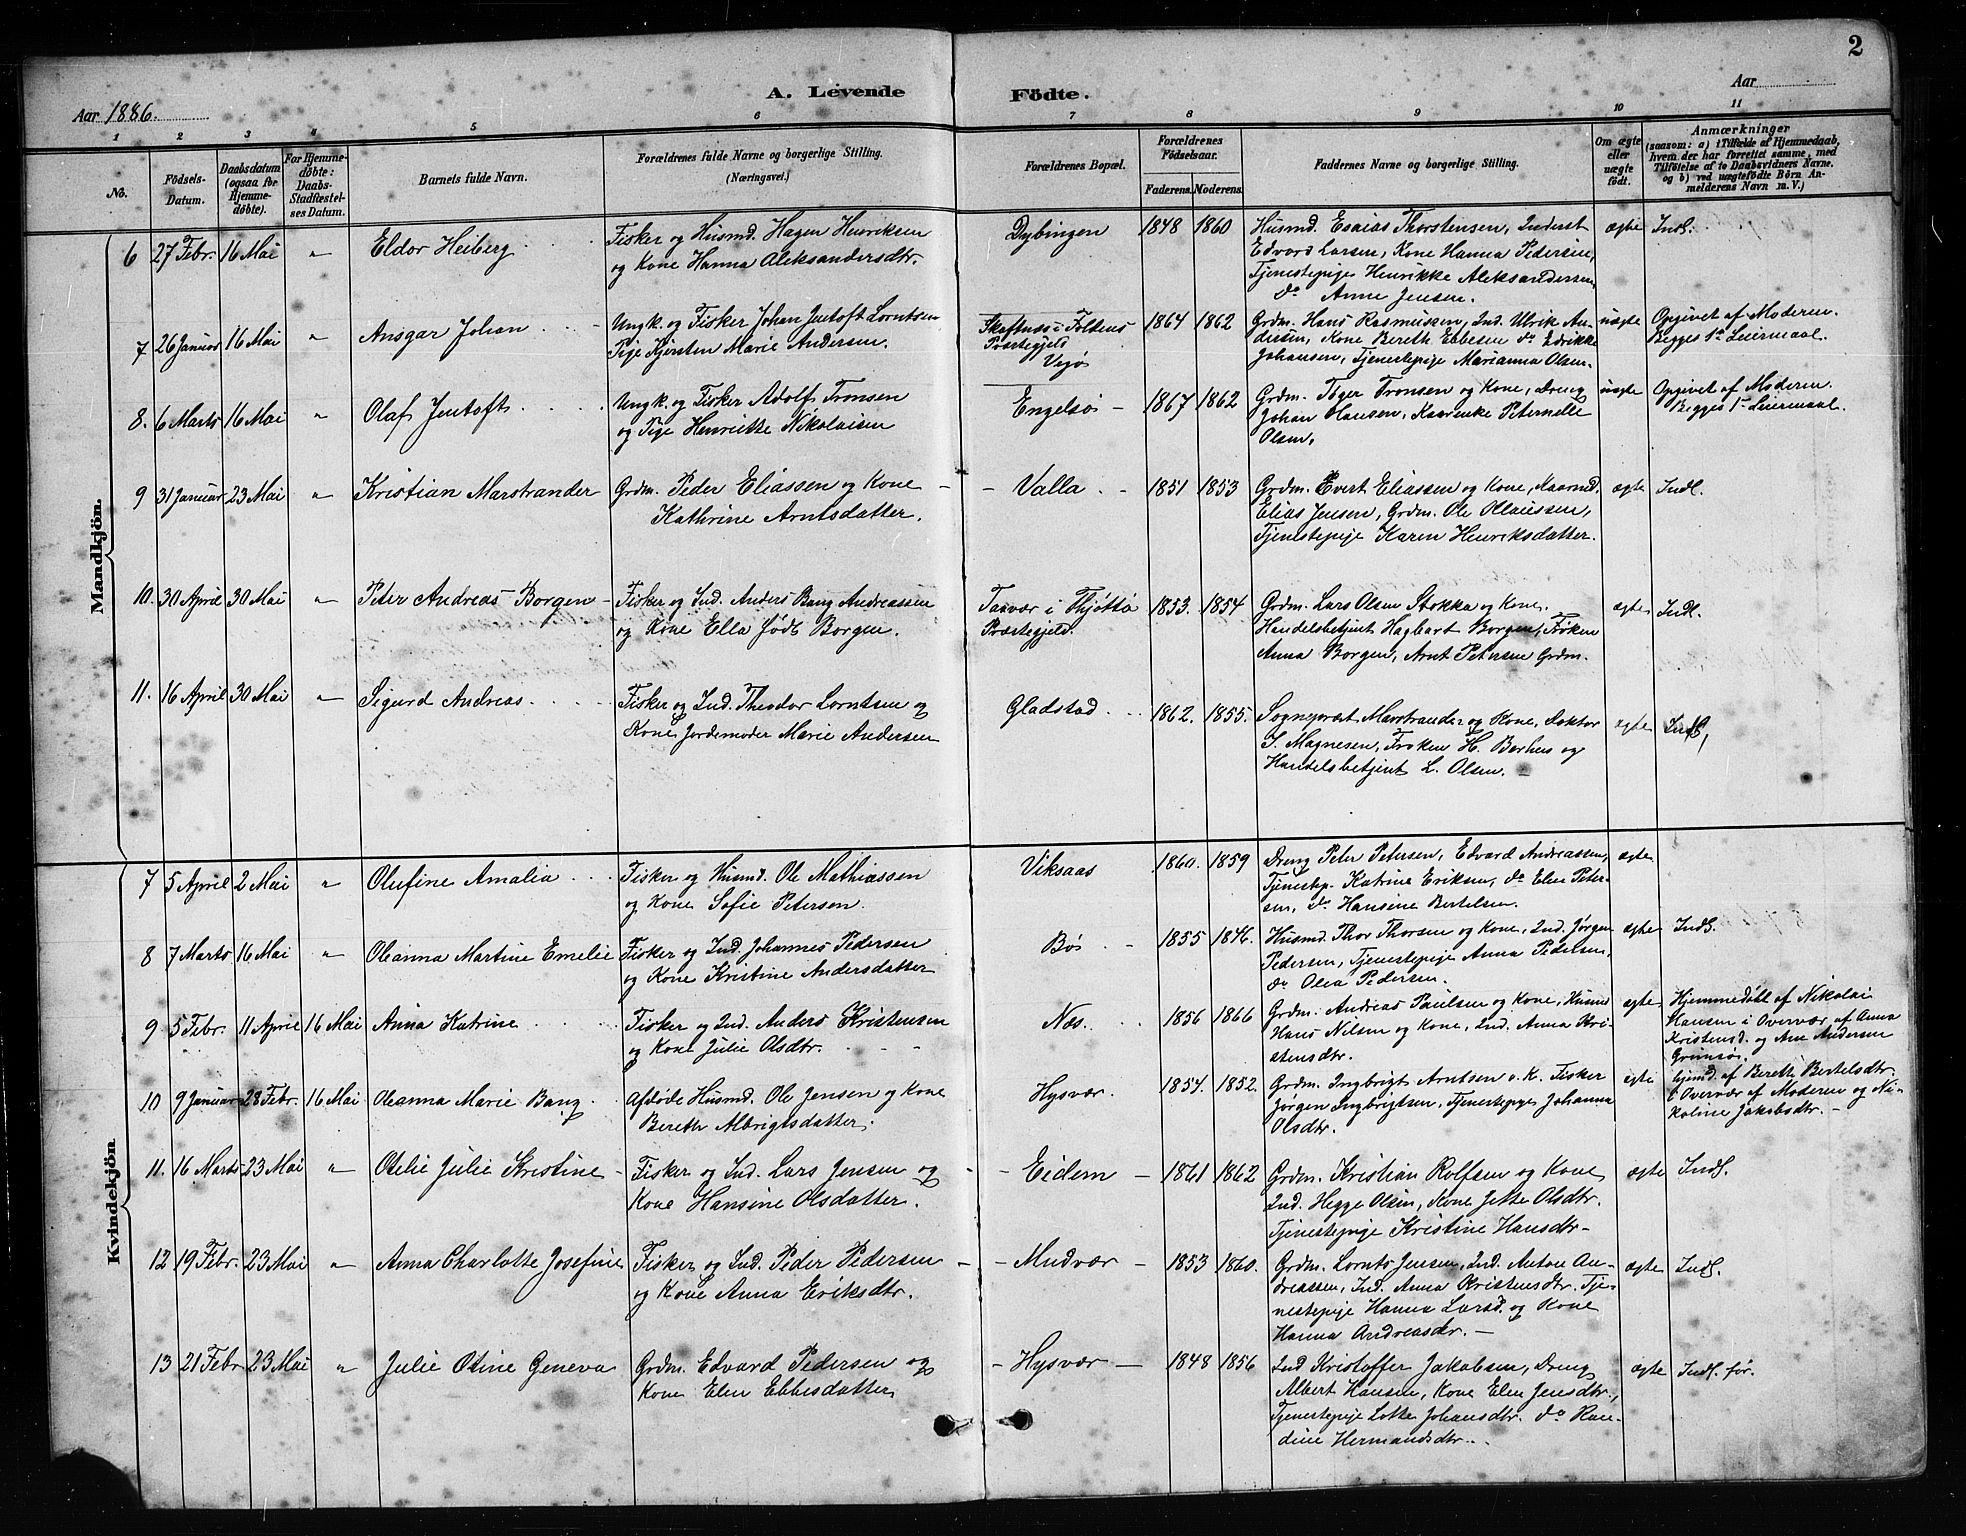 2
Aar 1886.
A. Levende Födte.
Aar
1 2 3 4 5 6 7 8 9 10 11
No.
Födsels-Datum.
Daabsdatum (ogsaa for Hjemme-döbte).
For Hjemme-döbte: Daabs-Stadfæstel-ses Datum.
Barnets fulde Navn.
Forældrenes fulde Navne og borgerlige Stilling.
(Næringsvei.)
Forældrenes Bopæl.
Forældrenes Födselsaar.
Faderens. Moderens.
Faddernes Navne og borgerlige Stilling.
Om ægte eller uægte födt.
Anmærkninger
(saasom: a) i Tilfælde af Hjemmedaab,
hvem der har forrettet samme, med
Tilföielse af to Daabsvidners Navne.
og b) ved uægtefödte Börn An-
melderens Navn m. V.)
Mandkjön.
6 27 Febr. 16 Mai " Eldor Heiberg Fisker og Husmd. Hagen Henriksen Dybingen 1848 1860 Husmd. Esaias Thorstensen, Inderst ægte Indl.
og Kone Hanna Aleksandersdtr. Edvard Larsen, Kone Hanna Pedersen,
Tjenestepige Henrikke Aleksandersen,
do Anne Jensen.
7 26 Januar 16 Mai " Ansgar Johan Ungk. og Fisker Johan Jentoft Lorntsen Skaftnes i Foldens 1864 1862 Grdm. Hans Rasmussen, Ind. Ulrik An- uægte Opgivet af Moderen.
Pige Kjersten Marie Andersen. Præstegjeld dersen, Kone Bereth Ebbesen do Edrikke Begges 1ste Leiermaal.
Vejø Johansen, Tjenestepige Marianna Olsen.
8. 6 Marts 16 Mai " Olaf Jentoft Ungk. og Fisker Adolf Tronsen Engelsø 1867 1862 Grdm. Toger Tronsen og Kone, Dreng uægte Opgivet af Moderen.
og Pige Henriette Nikolaisen Johan Hansen, Kaarenke Peternelle Begges 1ste Leiermaal.
Olsen.
9 31 Januar 23 Mai " Kristian Marstrander Grdm. Peder Eliassen og Kone Valla 1851 1853 Grdm. Evert Eliassen og Kone, Kaarmd. ægte Indl.
Kathrine Arntsdatter. Elias Jensen, Grdm. Ole Olaussen,
Tjenestepige Karen Henriksdatter.
10. 30 April 30 Mai " Peter Andreas Borgen Fisker og Ind. Anders Bang Andreassen Tasvær i Thjøttø 1853. 1854 Grdm. Lars Olsen Stokka og Kone. ægte Indl.
og Kone Ella født Borgen. Præstegjeld. Handelsbetjent Hagbart Borgen, Frøken
Anna Borgen, Arnt Petersen Grdm.
11. 16 April 30 Mai " Sigurd Andreas Fisker og Ind. Theodor Lorntsen og Gladstad 1862. 1855. Sognepræst Marstrander og Kone, Doktor ægte Indl,
Kone Jordemoder Marie Andersen S. Magnesen, Frøken H. Borhus og
Handelsbetjent L. Olsen.
Kvindekjön
7 5 April 2 Mai " Olufine Amalia Fisker og Husmd. Ole Mathiassen Viksaas 1860. 1859 Dreng Peter Petersen, Edvard Andreassen, ægte
og Kone Sofie Petersen. Tjenestep. Katrine Eriksen, do Elen Peter-
sen, do Hansine Bertelsen.
8 7 Marts 16 Mai " Oleanna Martine Emelie Fisker og Ind. Johannes Pedersen Bø 1855 1846. Husmd. Thor Thorsen og Kone, Ind. Jørgen ægte Indl.
og Kone Kristine Andersdatter Pedersen, Tjenestepige Anna Pedersen,
do Olea Pedersen.
9 5 Febr. 11 April 16 Mai Anna Katrine Fisker og Ind. Anders Kristensen Nøs. 1856 1866 Grdm. Andreas Paulsen og Kone, Husmd ægte Hjemmedøbt af Nikolai
og Kone Julie Olsdtr. Hans Nilsen og Kone, Ind. Anna Kri- Hansen i Overvær af Anna
stensdtr. Kristensd. og Ane Andersen
Grimsø.
10 9 Januar 28 Febr. 16 Mai Oleanna Marie Bang Afdøde Husmd. Ole Jensen og Kone Hysvær. 1854. 1852. Grdm. Ingbrigt Arntsen o. K. Fisker ægte hjemd. af Bereth Bertelsdtr.
Bereth Albrigtsdatter. Jørgen Ingbrigtsen, Tjenestepige Johanna i Overvær af Moderen og Ni-
Olsdtr. koline Jakobsdtr.
11. 16 Marts 23 Mai " Otelie Julie Kristine Fisker og Ind. Lars Jensen og Eidem 1861 1862 Grdm. Kristian Rolfsen og Kone ægte Indl.
Kone Hansine Olsdatter. Ind. Hegge Olsen, Kone Jette Olsdtr.
Tjenestepige Kristine Hansdtr
12 19 Febr. 23 Mai " Anna Charlotte Josefine Fisker og Ind. Peder Pedersen Mudvær 1853 1860. Grdm. Lornts Jensen, Ind. Anton An- ægte Indl.
og Kone Anna Eriksdtr. dreassen, Ind. Anna Kristensdtr. Tje-
nestepige Hanna Larsd. og Kone
Hanna Andreasdr.
13 21 Febr 23 Mai " Julie Otine Geneva Grdm. Edvard Pedersen og Hysvær 1848 1856 Ind Kristoffer Jakobsen, Dreng ægte Indl. før.
Kone Elen Ebbesdatter Albert Hansen, Kone Elen Jensdtr.,
Tjenestepige Lotte Johansdtr. do Ran-
dine Hermandsdtr.